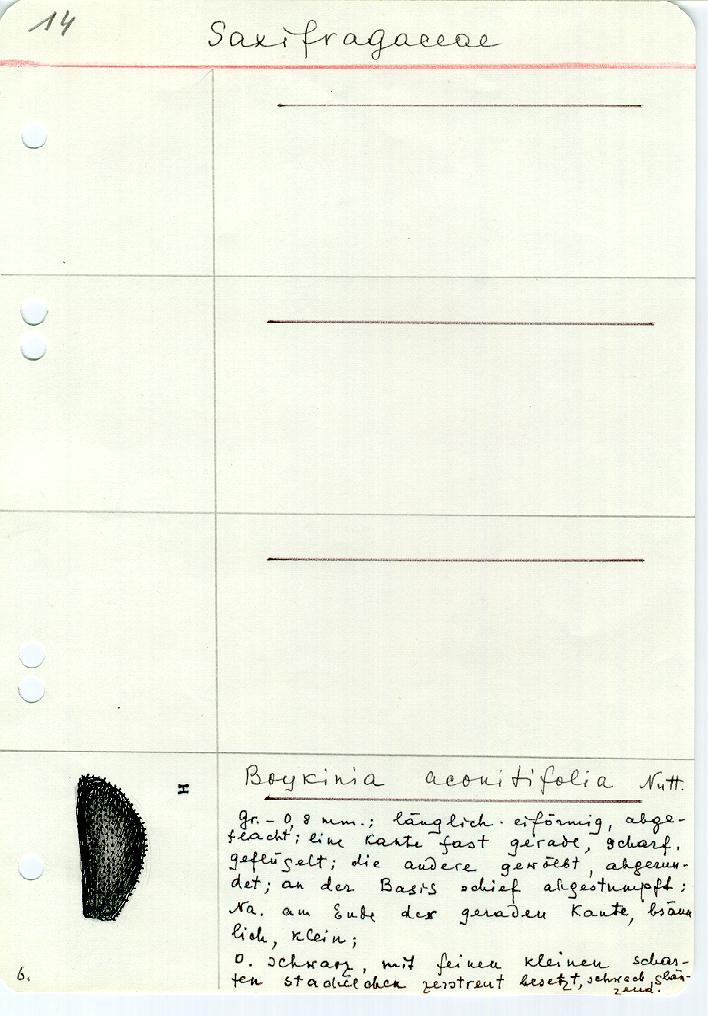 14
Saxifragaceae
Boykinia aconitifolia Nutt.
H
Gr. - 0,8 mm.; länglich-eiförmig, abge-
flacht; eine Kante fast gerade, scharf,
geflügelt; die andere gewölbt, abgerun-
det; an der Basis schief abgestumpft;
Na. am Ende der geraden Kante, bräun
lich, klein;
O. schwarz, mit feinen kleinen schar-
fen Stachelchen zerstreut besetzt, schwach glän-
zend.
6.